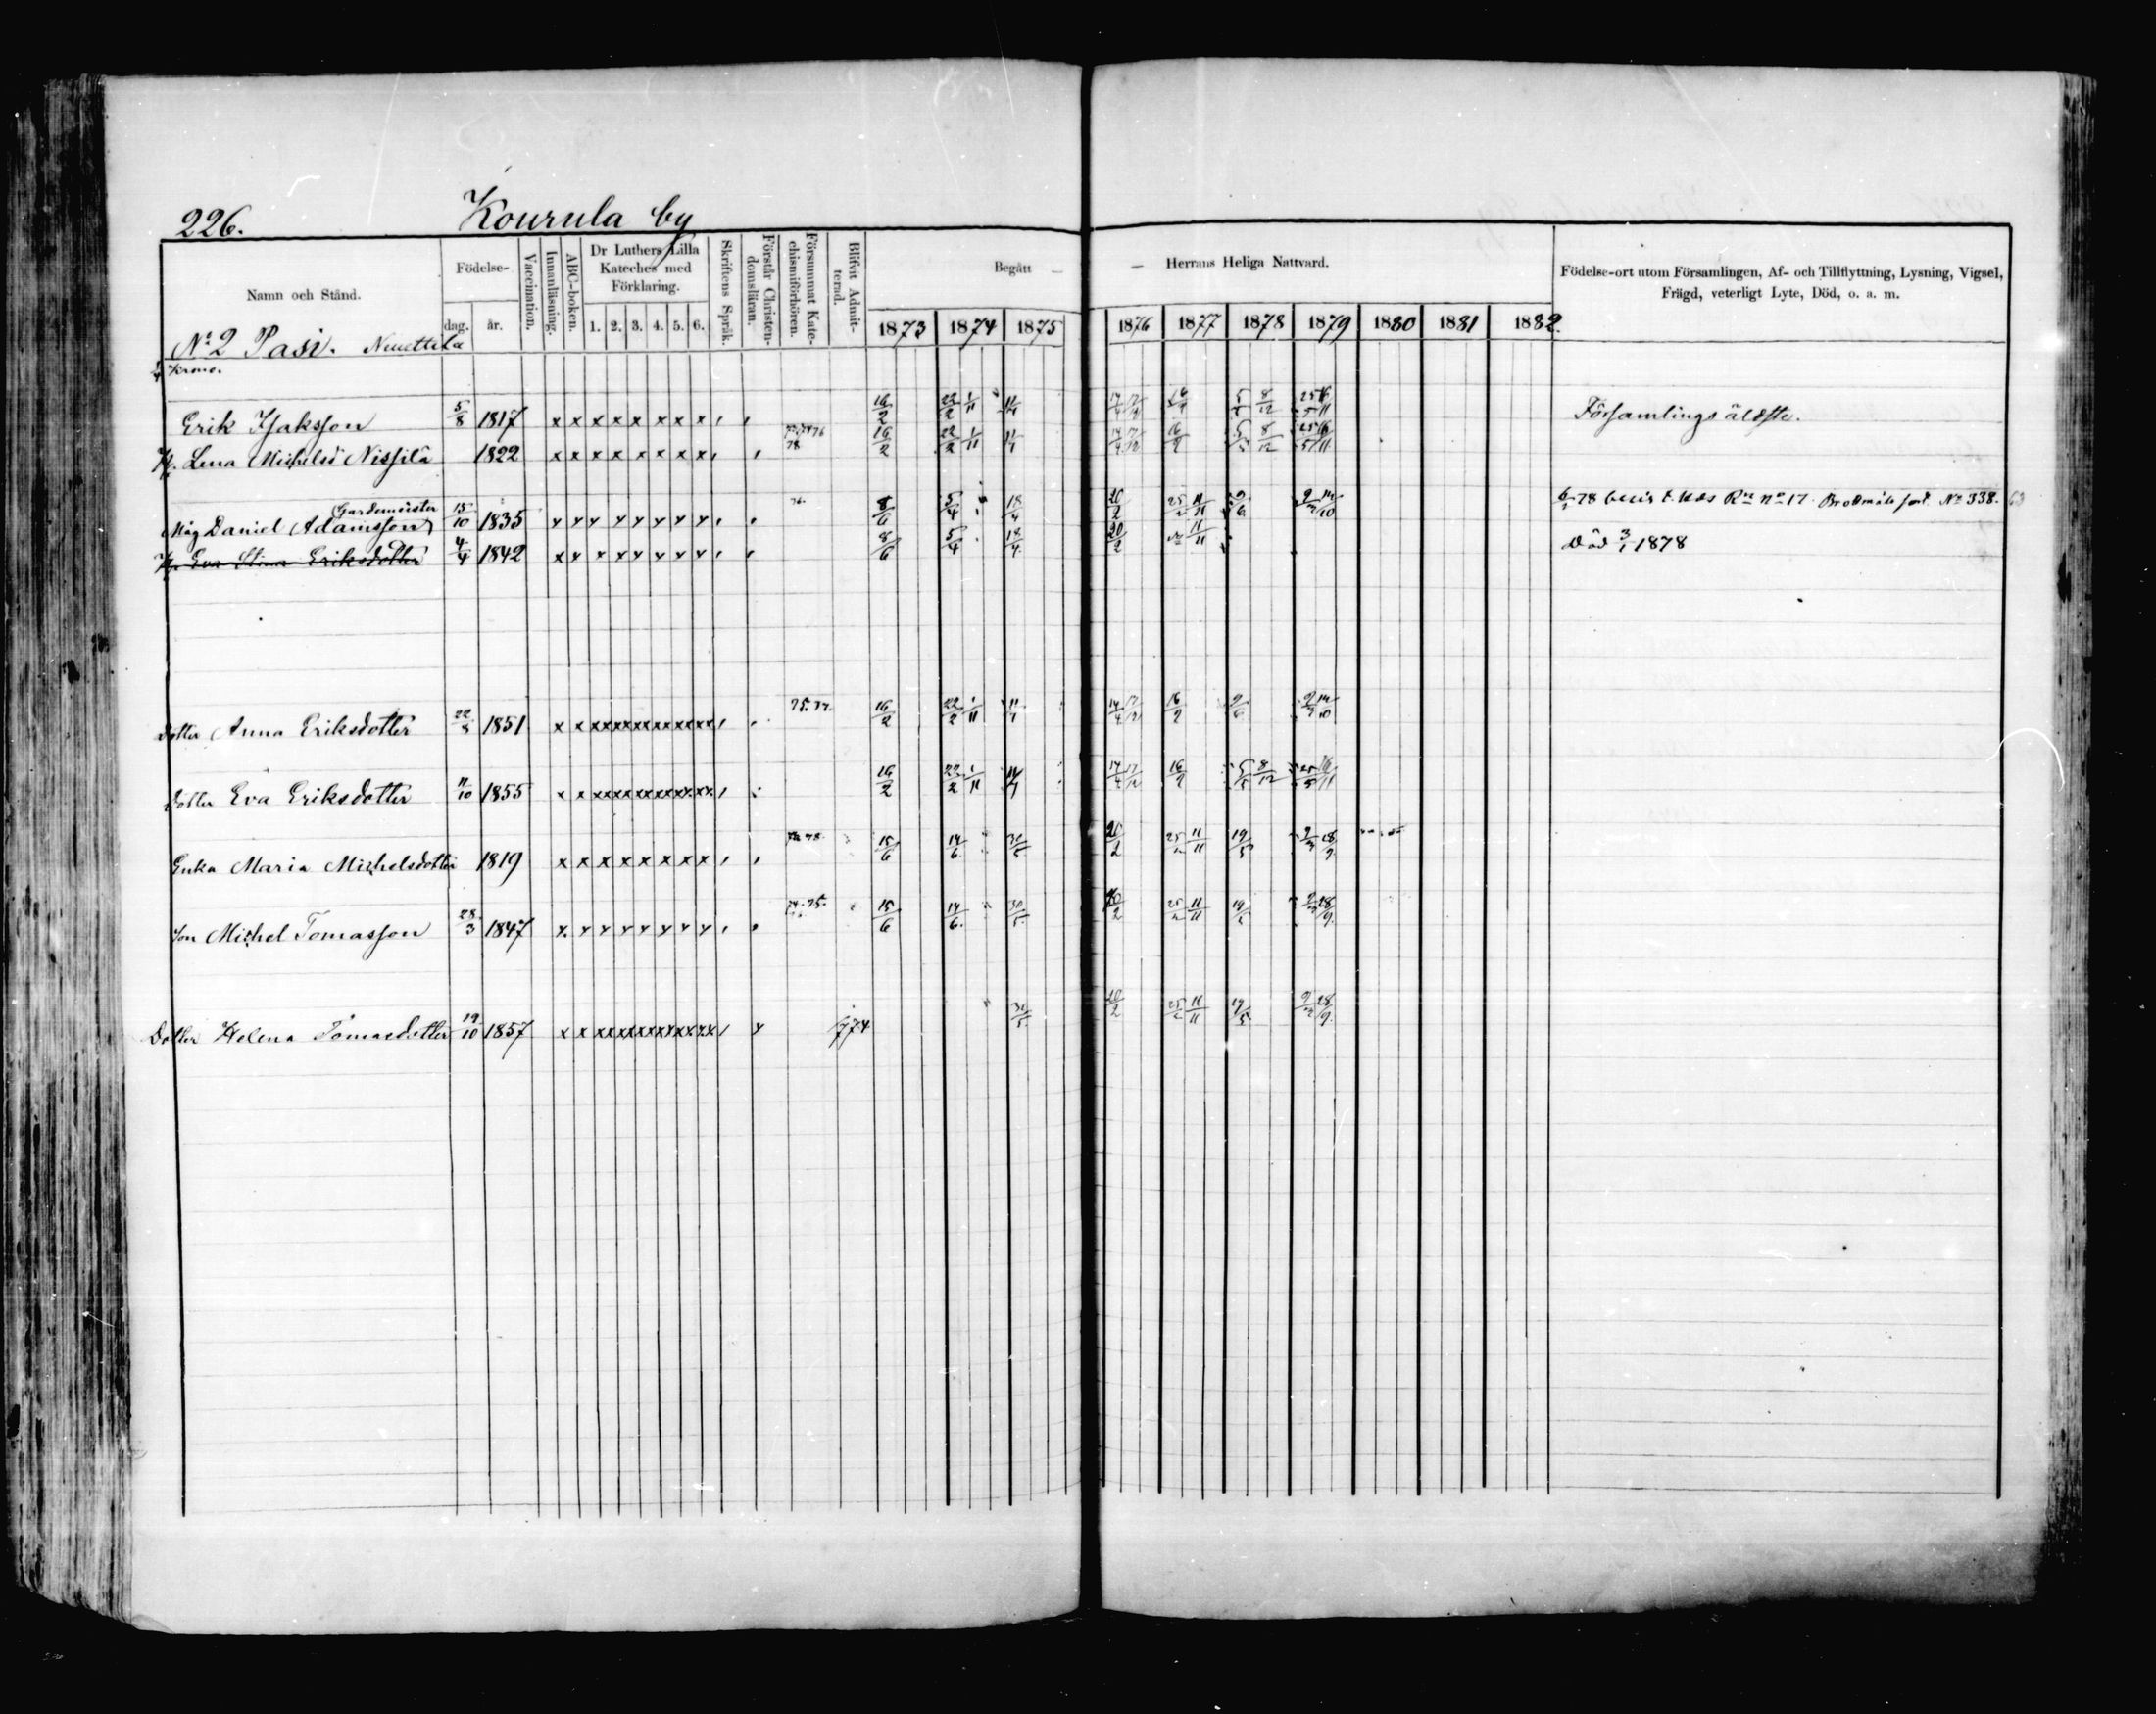 226. Kourula by
Namn och Stånd.
Födelse-
dag. år.
Vaccination.
Innanläsning.
ABC-boken.
Dr Luthers Lilla
Kateches med
Förklaring.
1. 2. 3. 4. 5. 6.
Skriftens Språk.
Förstår Christen-
domsläran.
Försummat Kate-
chismiförhören.
Blifvit Admit-
terad.
Begått — — Herrans Heliga Nattvard.
1873 1874 1875 1876 1877 1878 1879 1880 1881 1882.
Födelse-ort utom Församlingen, Af- och Tillflyttning, Lysning, Vigsel,
Frägd, veterligt Lyte, Död, o. a. m.
No 2 Pasi.
Krono.
Erik Isaksson 5/8 1817 x x x x x x x x 16/2 22/2 1/11 Församlings äldste.
H. Lena Michelsd Nissilä 1822 x x x x x x x x 78 16/2 22/2 1/11 16/9 5/5 8/12
Måg Daniel Adamsson 15/10 1835 x x x x x x x x 76. 8/6 5/4 18/4 20/2 25/2 11/11 9/6 No 17 No 338.
H. Eva Stina Eriksdotter 4/4 1842 x x x x x x x x 8/6 5/4 18/4 20/2 11/11 Död 3/1 1878
Dotter Anna Eriksdotter 1851 75. 77. 16/2 22/2 1/11 14/4 17/12 16/9 9/6
Dotter Eva Eriksdotter 11/10 1855 16/2 22/2 1/11 14/4 17/12 16/9 5/5 8/12 25/5 16/11
Enka Maria Michelsdotter 1819 x x x x x x x x 15/6 14/6. 30/5. 20/2 25/2 11/11 19/5 28/9.
Son Michel Tomasson 28/3 1847 x x x x x x x x 15/6 14/6. 30/5. 20/2 25/2 11/11 19/5 28/9.
Dotter Helena Tomasdotter 19/10 1857 30/5. 20/2 25/2 11/11 19/5. 28/9.